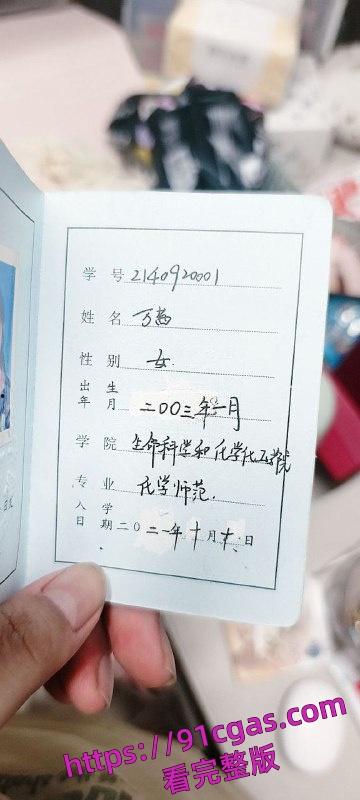 学号 214092001
姓名 万茜
性别 女.
出生年月 二00三年一月
学院 生命科学和化学化工学院
专业 化学师范.
入学日期 二0二一年十月十日
https://91cgas.com
看完整版